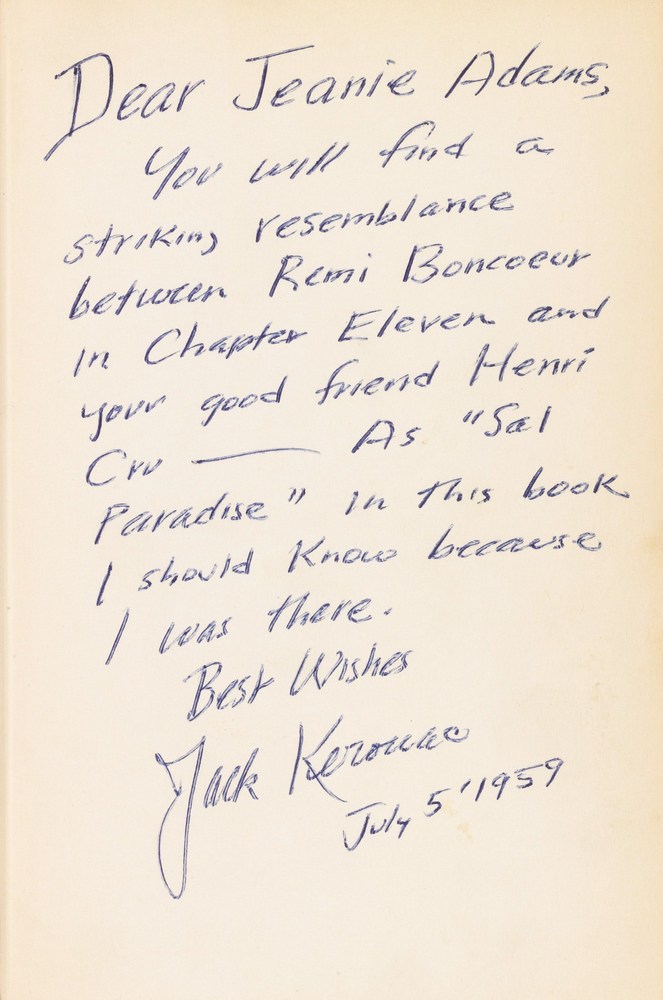 Dear Jeanie Adams,
You will find a
striking resemblance
between Remi Boncoeur
in Chapter Eleven and
your good friend Henri
Cru — As "Sal
Paradise" in this book
I should know because
I was there.
Best Wishes
Jack Kerouac
July 5 '1959